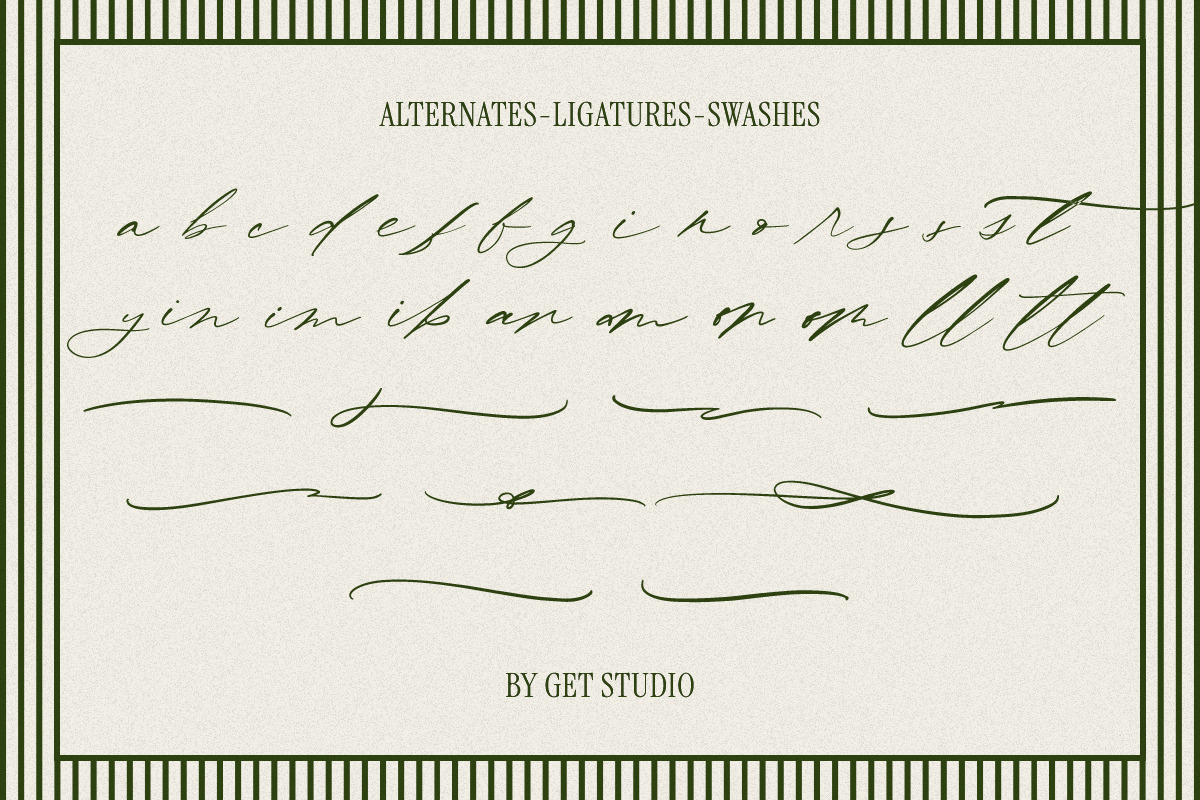 ALTERNATES-LIGATURES-SWASHES
a b c d e f f g i n o r s s s t
y in im ip an am on om ll tt
BY GET STUDIO